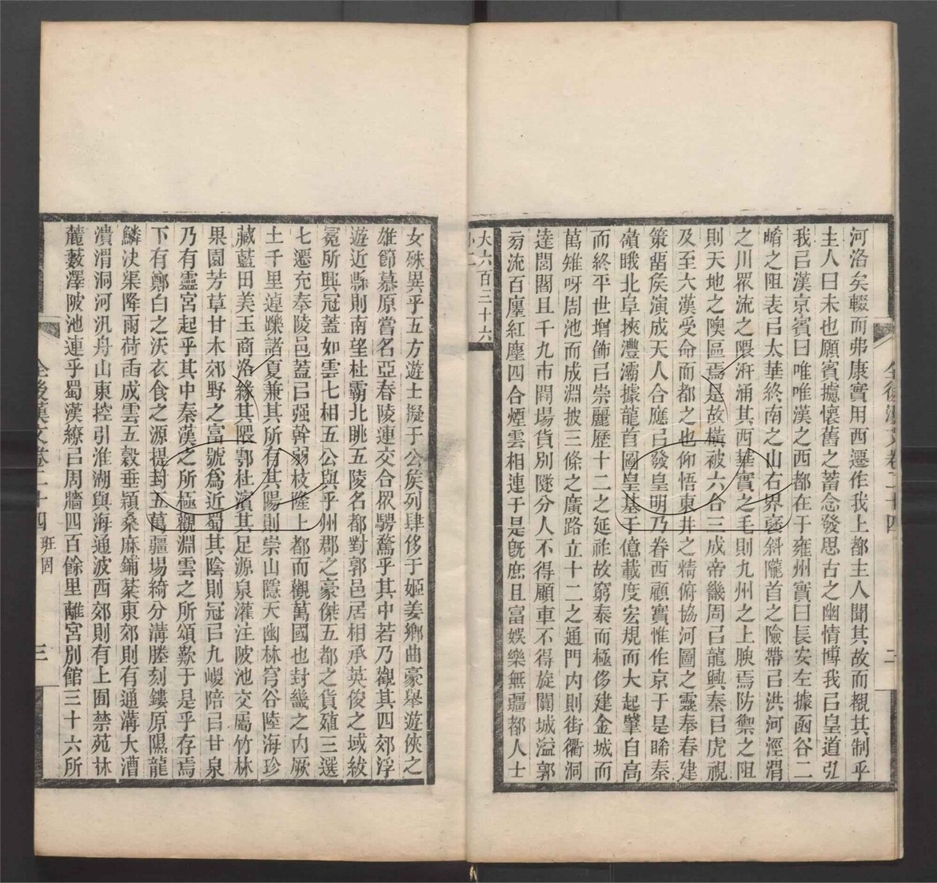 全後漢文卷二十四 二
河洛矣輟而弗康實用西遷作我上都主人聞其故而覩其制乎
主人曰未也願賓攄懷舊之蓄念發思古之幽情博我㠯皇道弘
我㠯漢京賓曰唯唯漢之西都在于雍州實曰長安左據函谷二
崤之阻表㠯太華終南之山右界襃斜隴首之險帶㠯洪河涇渭
之川眾流之隈汧涌其西華實之毛則九州之上腴焉防禦之阻
則天地之隩區焉是故橫被六合三成帝畿周㠯龍興秦㠯虎視
及至大漢受命而都之也仰悟東井之精俯協河圖之靈奉春建
策畱矦演成天人合應㠯發皇明乃眷西顧實惟作京于是睎秦
嶺睋北阜挾灃灞據龍首圖皇基于億載度宏規而大起肇自高
而終平世增飾㠯崇麗歷十二之延祚故窮泰而極侈建金城而
萬雉呀周池而成淵披三條之廣路立十二之通門內則街衢洞
達閭閻且千九市開場貨別隧分人不得顧車不得旋闐城溢郭
㫄流百廛紅塵四合煙雲相連于是旣庶且富娛樂無疆都人士
大六百三十六
小二
女殊異乎五方遊士擬于公矦列肆侈于姬姜鄉曲豪舉遊俠之
雄節慕原嘗名亞春陵連交合衆騁騖乎其中若乃觀其四郊浮
遊近縣則南望杜霸北眺五陵名都對郭邑居相承英俊之域紱
冕所興冠蓋如雲七相五公與乎州郡之豪傑五都之貨殖三選
七遷充奉陵邑蓋㠯强幹弱枝隆上都而觀萬國也封畿之內厥
土千里逴躒諸夏兼其所有其陽則崇山隱天幽林穹谷陸海珍
藏藍田美玉商洛緣其隈鄠杜濱其足源泉灌注陂池交屬竹林
果園芳草甘木郊野之富號爲近蜀其陰則冠㠯九嵕陪㠯甘泉
乃有靈宮起乎其中秦漢之所極觀淵雲之所頌歎于是乎存焉
下有鄭白之沃衣食之源提封五萬疆場綺分溝塍刻鏤原隰龍
鱗決渠降雨荷臿成雲五穀垂穎桑麻鋪棻東郊則有通溝大漕
潰渭洞河汎舟山東控引淮湖與海通波西郊則有上囿禁苑林
麓藪澤陂池連乎蜀漢繚㠯周牆四百餘里離宮別館三十六所
全後漢文卷二十四 班固 三